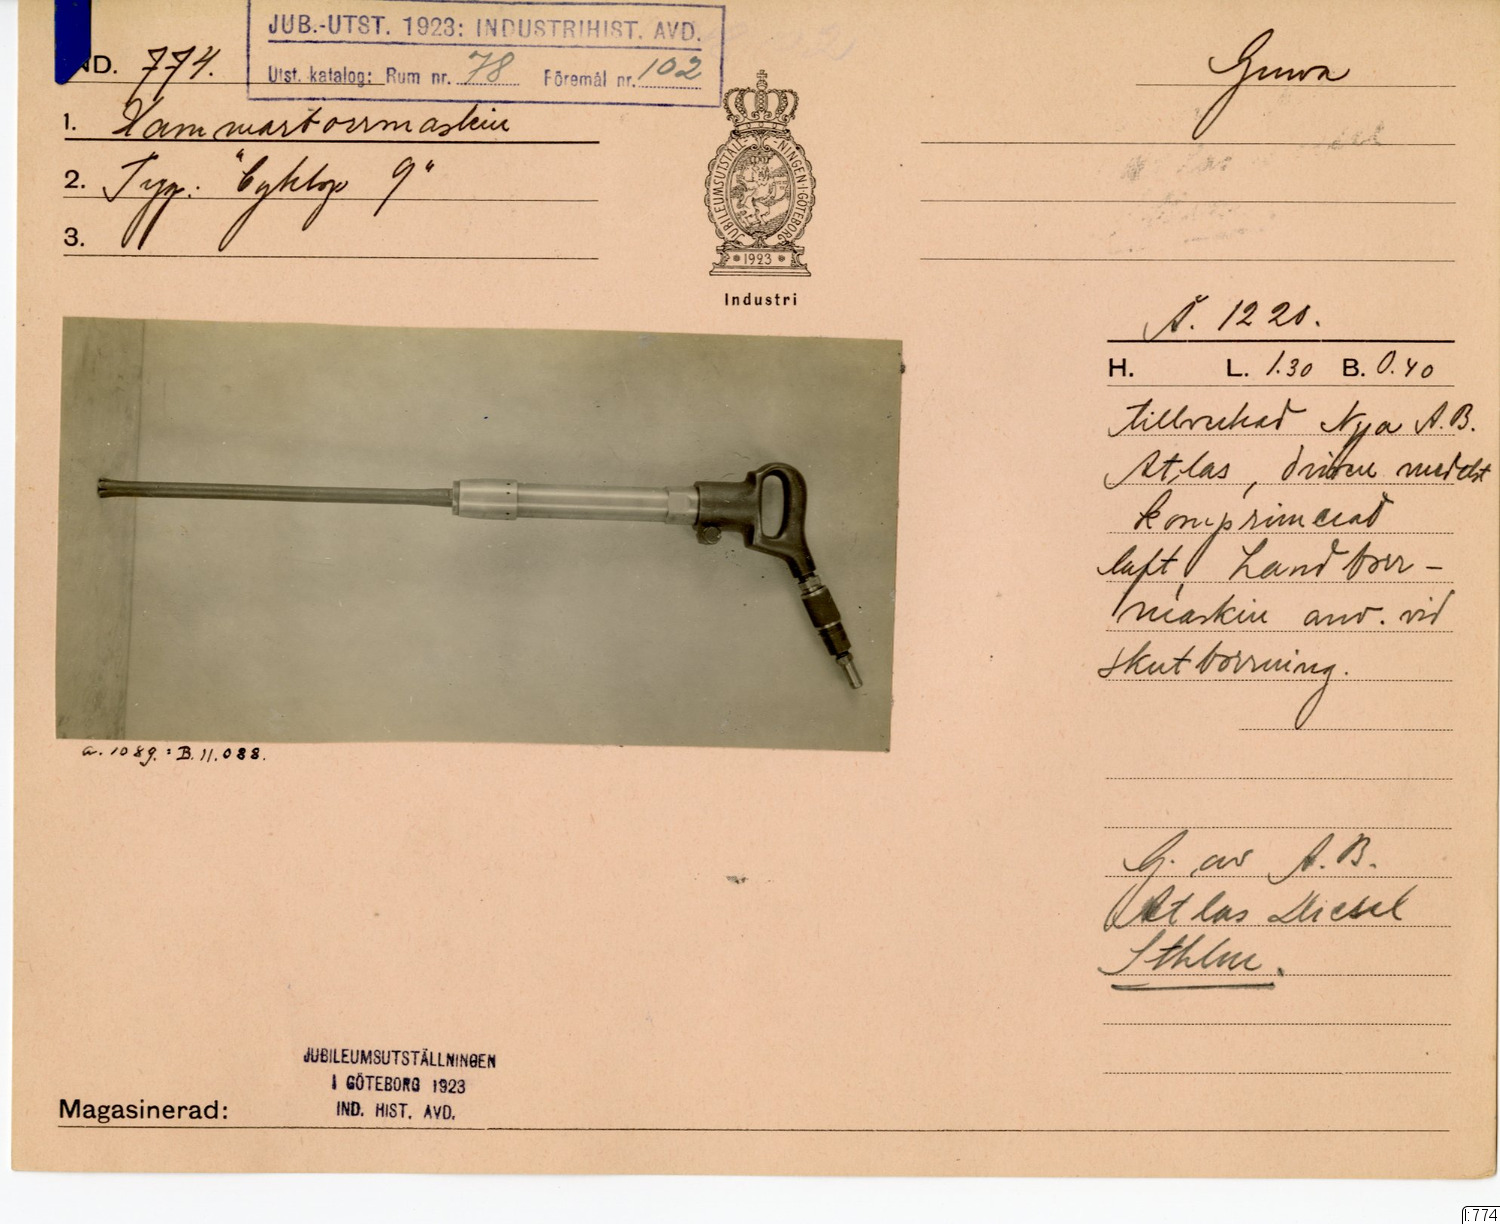 JUB.-UTST. 1923: INDUSTRIHIST. AVD.
Utst. katalog: Rum nr. 78 Föremål nr. 102
IND. 774.
1. Hammarborrmaskin
2. Typ: "Cyklop 9"
3.
JUBILEUMSUTSTÄLLNINGEN I GÖTEBORG
1923
Industri
Gruva
Å. 1220.
H. L. 1.30 B. 0.40
Tillverkad Nya A.B.
Atlas, driven medelst
komprimerad
luft, Handborr-
maskin anv. vid
skutborrning.
a. 1089. : B. 11.088.
G. av A.B.
Atlas Diesel
Sthlm.
JUBILEUMSUTSTÄLLNINGEN
I GÖTEBORG 1923
IND. HIST. AVD.
Magasinerad:
I:774